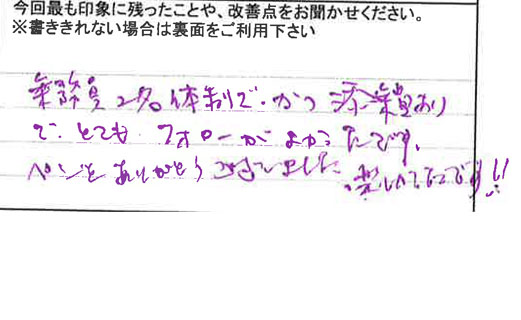 今回最も印象に残ったことや、改善点をお聞かせください。
※書ききれない場合は裏面をご利用下さい
乗務員2名体制で、かつ添乗員あり
で、とても フォローがよかったです。
ありがとうございました 楽しかったです!!